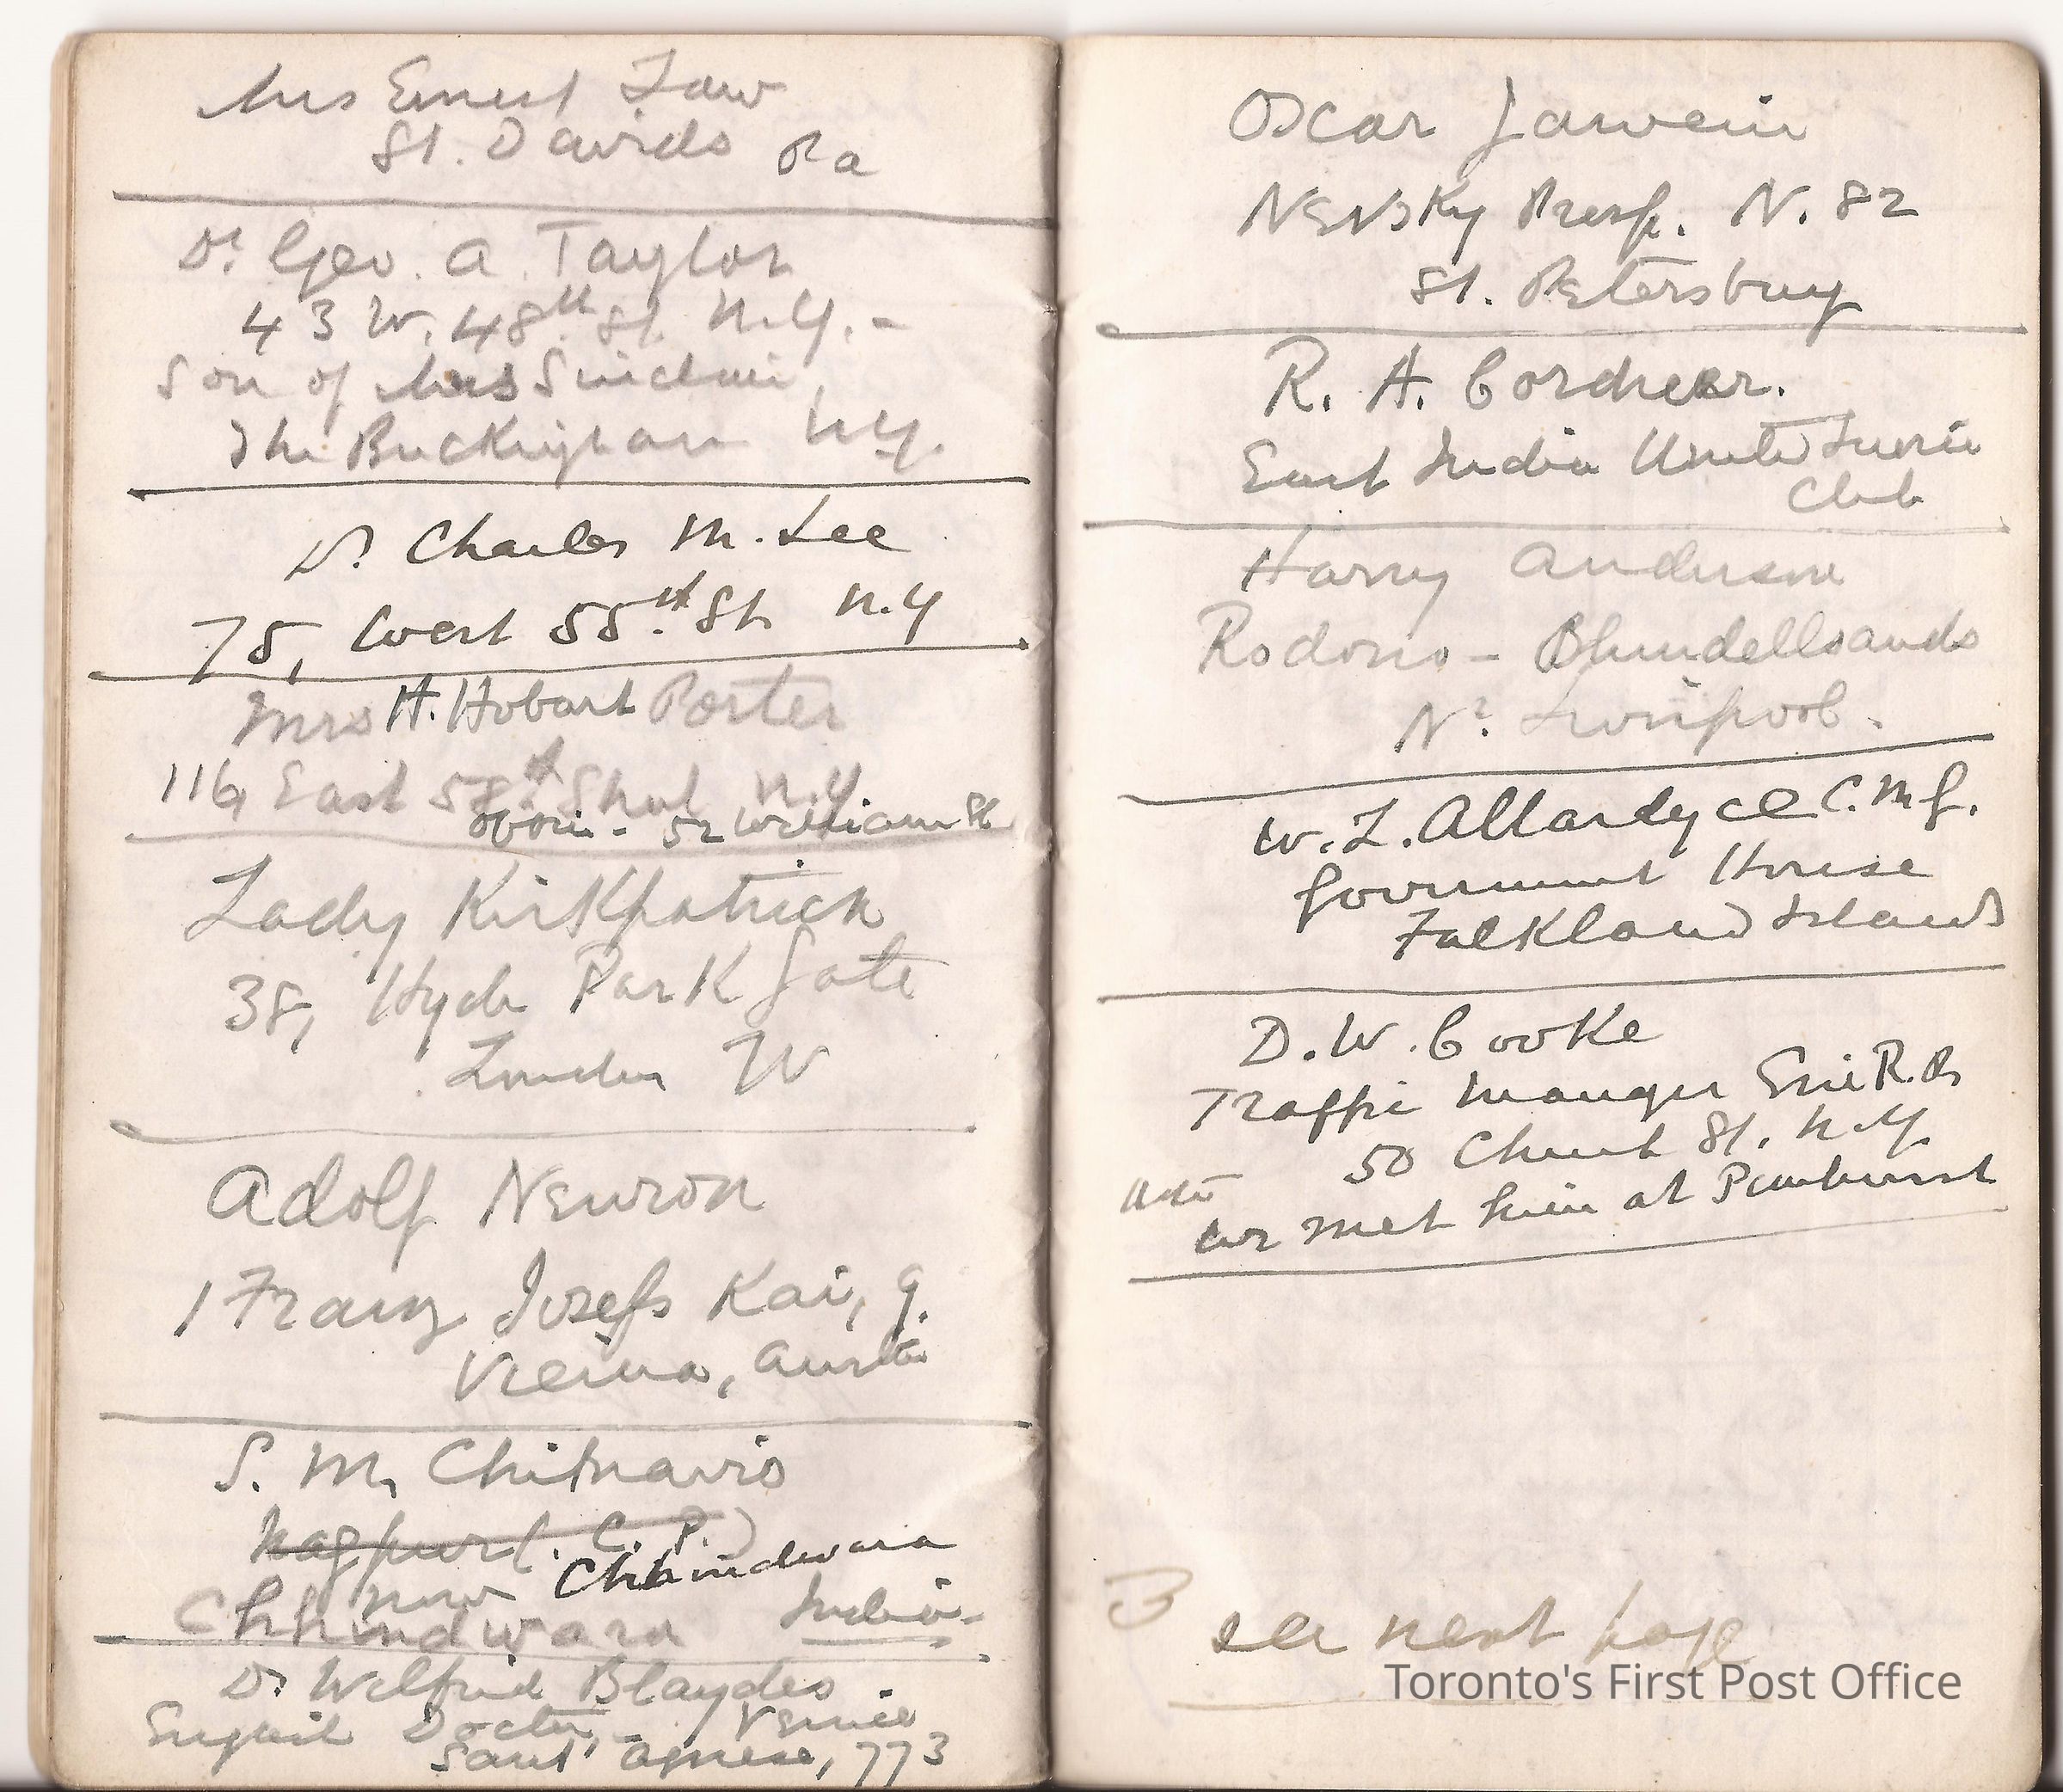 Mrs Ernest Law
St. Davids Pa
Dr Geo. A. Taylor
43 W. 48th St. N.Y. -
Son of Mrs Sinclair,
The Buckingham N.Y.
Dr Charles M. Lee
75, West 55th St. N.Y
Mrs H. Hobart Porter
116, East 58th Street N.Y
52 William St
Lady Kirkpatrick
38, Hyde Park Gate
London W
Adolf Neuron
1 Franz Josefs Kai, 9.
Vienna, Austria
S. M. Chitnavis
Nagpur (. C. P.)
now Chhindwara
Chhindwara India -
Dr Wilfrid Blaydes
English Doctor, - Venice
Sant' Agnese, 773
Oscar Jawein
Nevsky Prosp. N. 82
St. Petersburg
R. A. Cordner.
East India United Service
Club
Harry Anderson
Rodono - Blundellsands
Nr. Liverpool.
W. L. Allardyce C.M.G.
Government House
Falkland Islands
D. W. Cooke
Traffic Manager Erie R. R.
50 Church St. N.Y.
we met him at Pinehurst
see next page
Toronto's First Post Office